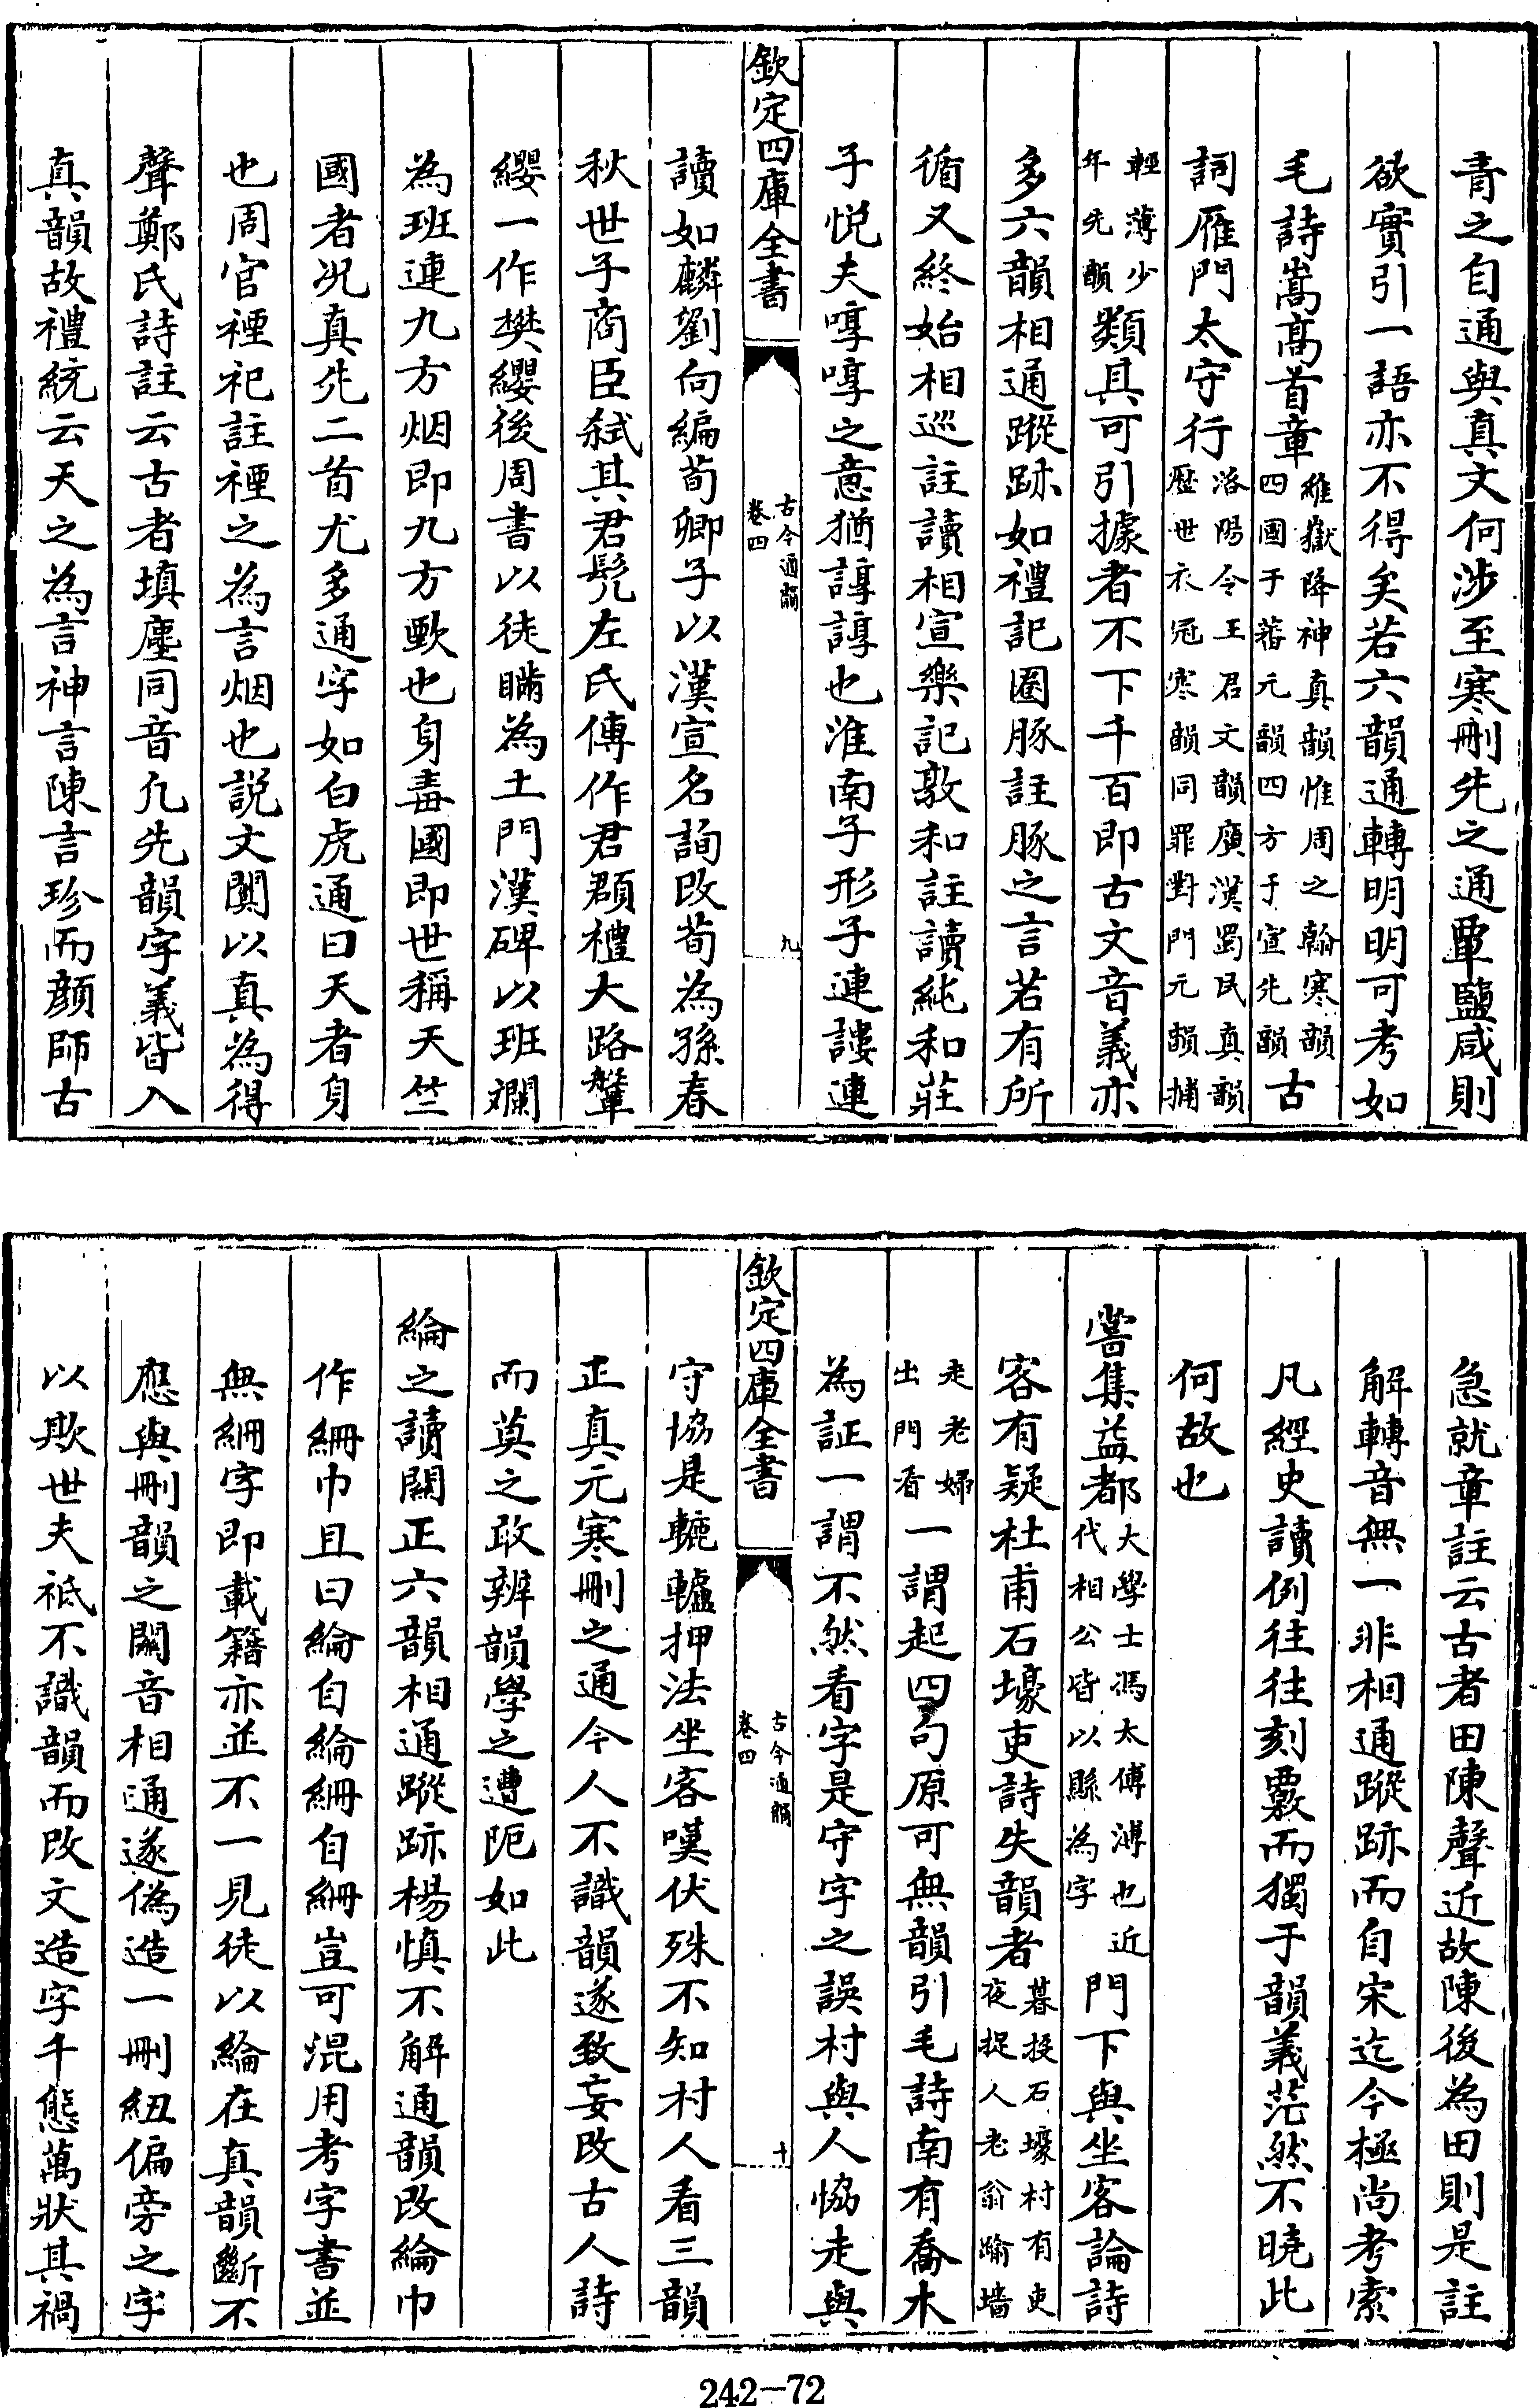 青之自通與真文何涉至寒刪先之通覃鹽咸則
欲實引一語亦不得矣若六韻通轉明明可考如
毛詩嵩高首章維嶽降神真韻惟周之翰寒韻四國于蕃元韻四方于宣先韻古
詞雁門太守行洛陽令王君文韻廣漢蜀民真韻歷世衣冠寒韻同罪對門元韻捕
輕薄少年先韻類具可引據者不下千百即古文音義亦
多六韻相通蹤跡如禮記圈豚註豚之言若有所
循又終始相巡註讀相宣樂記敦和註讀純和莊
子悅夫啍啍之意猶諄諄也淮南子形子連謱連
欽定四庫全書
古今通韻
卷四
九
讀如麟劉向編荀卿子以漢宣名詢改荀為孫春
秋世子商臣弒其君髠左氏傳作君頵禮大路鞶
纓一作樊纓後周書以徒瞞為土門漢碑以班斕
為班連九方烟即九方歅也身毒國即世稱天竺
國者况真先二首尤多通字如白虎通曰天者身
也周官禋祀註禋之為言烟也說文闐以真為得
聲鄭氏詩註云古者填塵同音凡先韻字義皆入
真韻故禮統云天之為言神言陳言珍而顏師古
急就章註云古者田陳聲近故陳後為田則是註
解轉音無一非相通蹤跡而自宋迄今極尚考索
凡經史讀例往往刻覈而獨于韻義茫然不曉此
何故也
嘗集益都大學士馮太傅溥也近代相公皆以縣為字門下與坐客論詩
客有疑杜甫石壕吏詩失韻者暮投石壕村有吏夜捉人老翁踰墻
走老婦出門看一謂起四句原可無韻引毛詩南有喬木
為証一謂不然看字是守字之誤村與人協走與
欽定四庫全書
古今通韻
卷四
十
守協是轆轤押法坐客嘆伏殊不知村人看三韻
正真元寒刪之通今人不識韻遂致妄改古人詩
而莫之敢辨韻學之遭阨如此
綸之讀關正六韻相通蹤跡楊慎不解通韻改綸巾
作綳巾且曰綸自綸綳自綳豈可混用考字書並
無綳字即載籍亦並不一見徒以綸在真韻斷不
應與刪韻之關音相通遂偽造一刪紐偏旁之字
以欺世夫祗不識韻而改文造字千態萬狀其禍
242-72